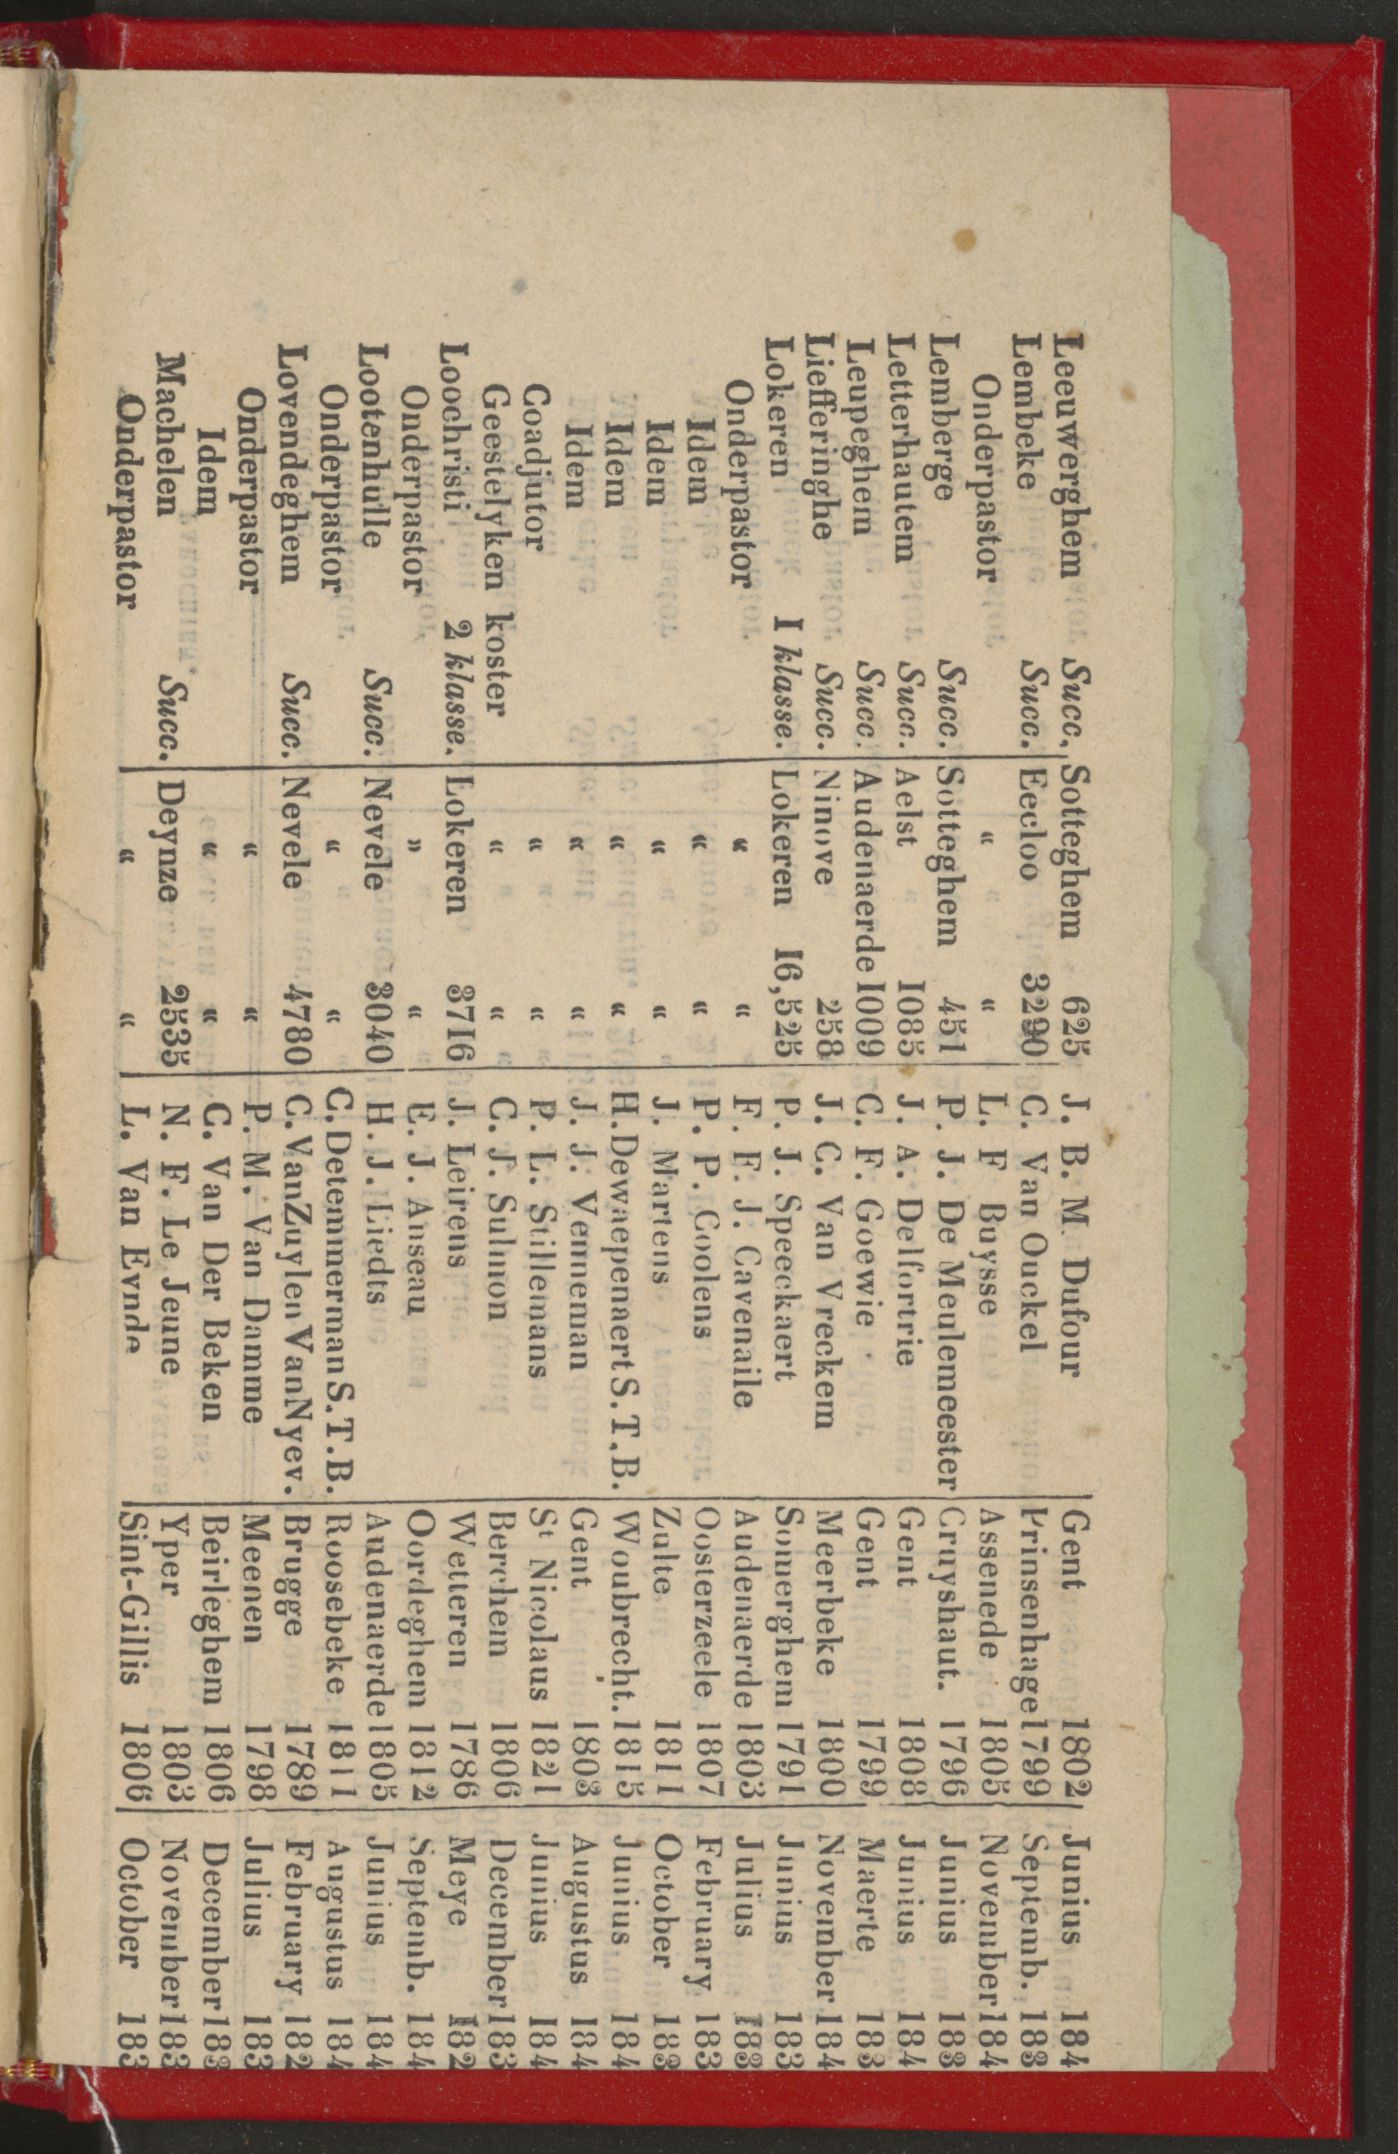 Leeuwerghem Succ. Sotteghem 625 J. B. M. Dufour Gent 1802 Junius 184
Lembeke Succ. Eecloo 3290 C. Van Ouckel Prinsenhage 1799 Septemb. 183
Onderpastor « « L. F Buysse Assenede 1805 November 184
Lemberge Succ. Sotteghem 451 P. J. De Meulemeester Cruyshaut. 1796 Junius 183
Letterhautem Succ. Aelst 1085 J. A. Delfortrie Gent 1808 Junius 184
Leupeghem Succ. Audenaerde 1009 C. F. Goewie Gent 1799 Maerte 183
Liefferinghe Succ. Ninove 258 J. C. Van Vreckem Meerbeke 1800 November 184
Lokeren I klasse. Lokeren 16,525 P. J. Speeckaert Somerghem 1791 Junius 183
Onderpastor « « F. F. J. Cavenaile Audenaerde 1803 Julius 183
Idem « « P. P. Coolens Oosterzeele 1807 February 183
Idem « « J. Martens Zulte 1811 October 183
Idem « « H. Dewaepenaert S. T. B. Woubrecht. 1815 Junius 184
Idem « « J. J. Venneman Gent 1803 Augustus 184
Coadjutor « « P. L. Stillemans St Nicolaus 1821 Junius 184
Geestelyken koster « « C. J. Sulmon Berchem 1806 December 183
Loochristi 2 klasse. Lokeren 3716 J. Leirens Wetteren 1786 Meye 182
Onderpastor » « E. J. Anseau Oordeghem 1812 Septemb. 184
Lootenhulle Succ. Nevele 3040 H. J. Liedts Audenaerde 1805 Junius 184
Onderpastor « « C. Detemmerman S. T. B. Roosebeke 1811 Augustus 184
Lovendeghem Succ. Nevele 4780 C. VanZuylen VanNyev. Brugge 1789 February 182
Onderpastor « « P. M. Van Damme Meenen 1798 Julius 183
Idem « « C. Van Der Beken Beirleghem 1806 December 183
Machelen Succ. Deynze 2535 N. F. Le Jeune Yper 1803 November 183
Onderpastor « « L. Van Eynde Sint-Gillis 1806 October 183